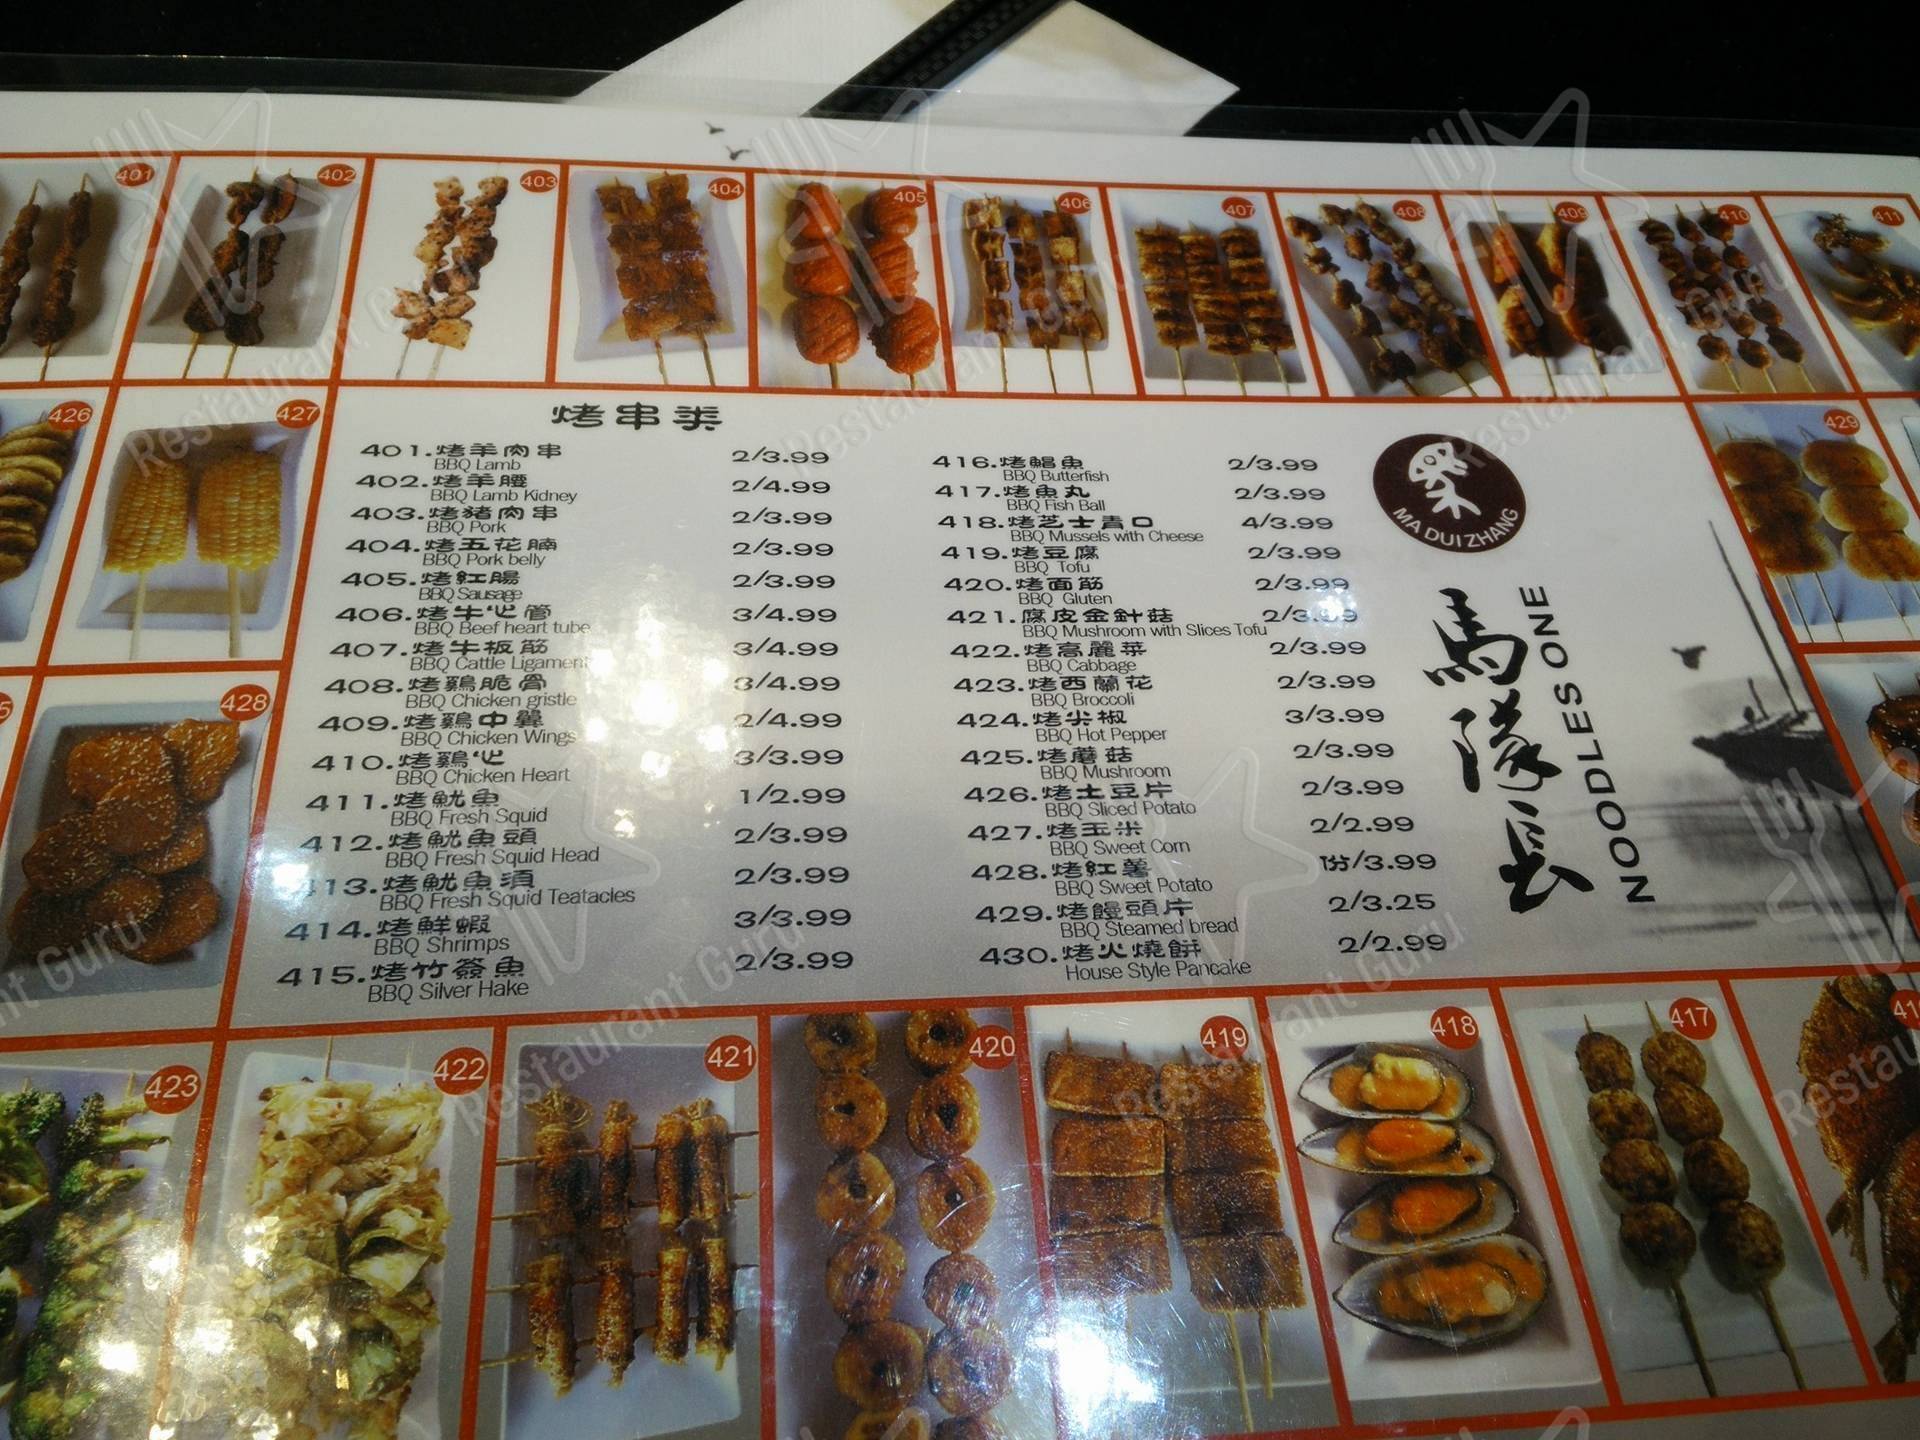 401
402
403
404
405
406
407
408
409
410
411
426
427
429
428
烤串类
401.烤羊肉串 2/3.99
BBQ Lamb
402.烤羊腰 2/4.99
BBQ Lamb Kidney
403.烤猪肉串 2/3.99
BBQ Pork
404.烤五花腩 2/3.99
BBQ Pork belly
405.烤紅腸 2/3.99
BBQ Sausage
406.烤牛心管 3/4.99
BBQ Beef heart tube
407.烤牛板筋 3/4.99
BBQ Cattle Ligament
408.烤鷄脆骨 3/4.99
BBQ Chicken gristle
409.烤鷄中翼 2/4.99
BBQ Chicken Wings
410.烤鷄心 3/3.99
BBQ Chicken Heart
411.烤魷魚 1/2.99
BBQ Fresh Squid
412.烤魷魚頭 2/3.99
BBQ Fresh Squid Head
413.烤魷魚須 2/3.99
BBQ Fresh Squid Teatacles
414.烤鮮蝦 3/3.99
BBQ Shrimps
415.烤竹簽魚 2/3.99
BBQ Silver Hake
416.烤鯧魚 2/3.99
BBQ Butterfish
417.烤魚丸 2/3.99
BBQ Fish Ball
418.烤芝士青口 4/3.99
BBQ Mussels with Cheese
419.烤豆腐 2/3.99
BBQ Tofu
420.烤面筋 2/3.99
BBQ Gluten
421.腐皮金針菇 2/3.99
BBQ Mushroom with Slices Tofu
422.烤高麗菜 2/3.99
BBQ Cabbage
423.烤西蘭花 2/3.99
BBQ Broccoli
424.烤尖椒 3/3.99
BBQ Hot Pepper
425.烤蘑菇 2/3.99
BBQ Mushroom
426.烤土豆片 2/3.99
BBQ Sliced Potato
427.烤玉米 2/2.99
BBQ Sweet Corn
428.烤紅薯 份/3.99
BBQ Sweet Potato
429.烤饅頭片 2/3.25
BBQ Steamed bread
430.烤火燒餅 2/2.99
House Style Pancake
MA DUI ZHANG
馬隊长
NOODLES ONE
423
422
421
420
419
418
417
Restaurant Guru
Restaurant Guru
Restaurant Guru
Restaurant Guru
Restaurant Guru
Restaurant Guru
Restaurant Guru
Restaurant Guru